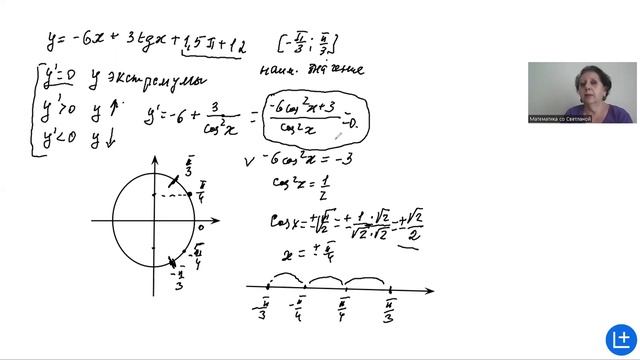 y = -6x + 3tgx + 1,5π + 12 [-π/3; π/3]
наим. значение
y' = 0 y экстремумы
y' > 0 y ↑
y' < 0 y ↓
y' = -6 + 3/cos²x = (-6cos²x + 3)/cos²x = 0.
v -6cos²x = -3
cos²x = 1/2
cosx = ±√1/2 = ± 1·√2/√2·√2 = ±√2/2
x = ± π/4
π/3
π/4
0
-π/4
-π/3
-π/3 -π/4 π/4 π/3
Математика со Светланой